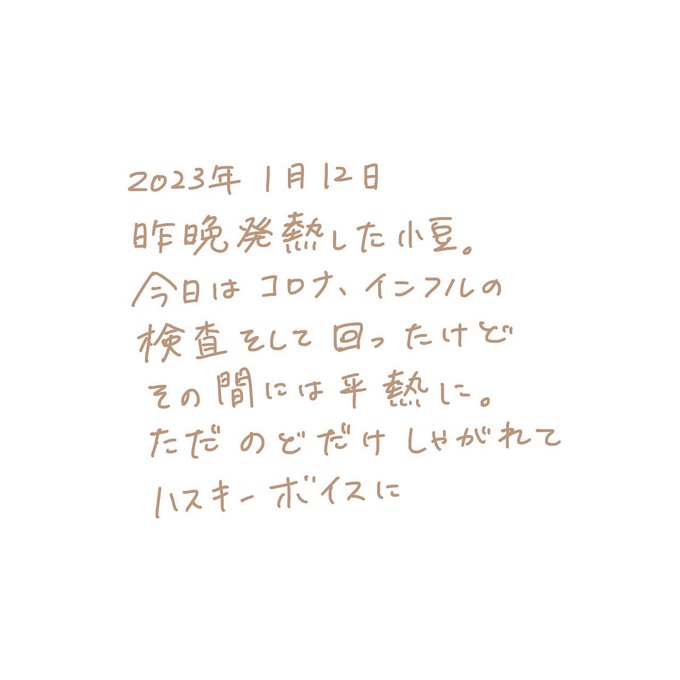 2023年 1月12日
昨晩発熱した小豆。
今日は コロナ、インフルの
検査をして 回ったけど
その間には平熱に。
ただ のどだけ しゃがれて
ハスキーボイスに